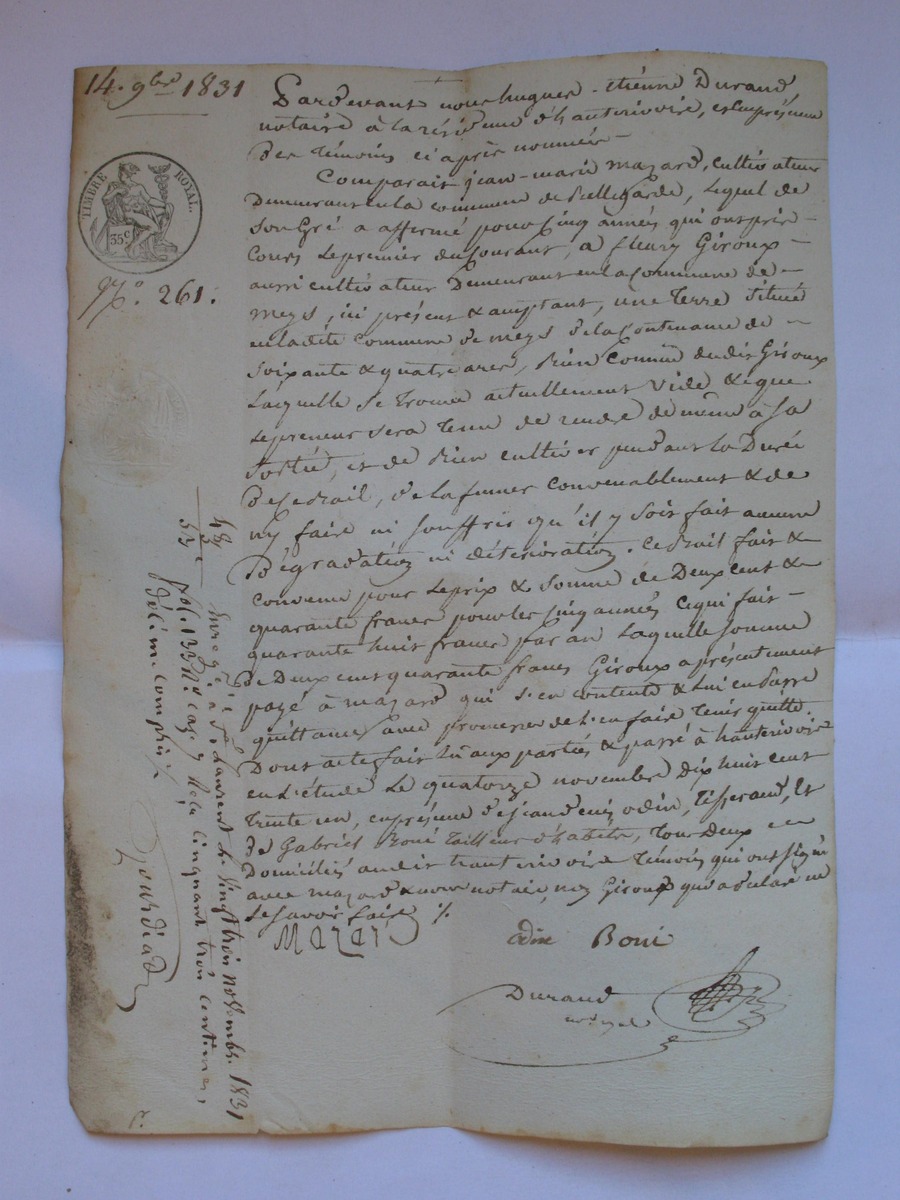 14. 9bre 1831
TIMBRE ROYAL.
35c
No. 261.
Pardevant nous hugues-étienne Durand,
notaire à la résidence d'hauterivoire, et en présence
des témoins ci après nommés —
Comparait jean-marie mazard, cultivateur
demeurant en la commune de Bellegarde, lequel de
son Gré a affermé pour cinq années qui ont pris
Cours le premier du Courant, à fleury Giroux —
aussi cultivateur demeurant en la Commune de —
meys, ici présent & acceptant, une terre située
en la dite commune de meys de la Contenance de —
soixante & quatre ares, bien connue dudit Giroux
laquelle se trouve actuellement vide & que
le preneur sera tenu de rendre de même à sa
sortie, et de bien cultiver pendant la Durée
de ce bail, de la fumer convenablement & de
n'y faire ni souffrir qu'il y soit fait aucune
Dégradation ni détérioration. Ce bail fait &
convenu pour le prix & somme de Deux cent &
quarante francs pour les cinq années ce qui fait —
quarante huit francs par an laquelle somme
de Deux cent quarante francs Giroux a présentement
payé à mazard qui s'en contente & lui en passe
quittance avec promesse de l'en faire tenir quitte.
Dont acte fait lu aux parties, & passé à hauterivoire
en l'étude le quatorze novembre dix huit cent
trente un, en présence d' odin, tisserand, et
de Gabriel Boni tailleur d'habits, tous deux
Domiciliés audit hauterivoire témoins qui ont signé
avec mazard & nous notaire, non Giroux qui a déclaré ne
le savoir faire ./.
Mazard
odin Boni
Durand
Enregé à St. Laurent le vingt trois novembre 1831
fol. 133 No. case 7 Reçu cinquante trois centimes,
Décime compris ./.
Gourdiat